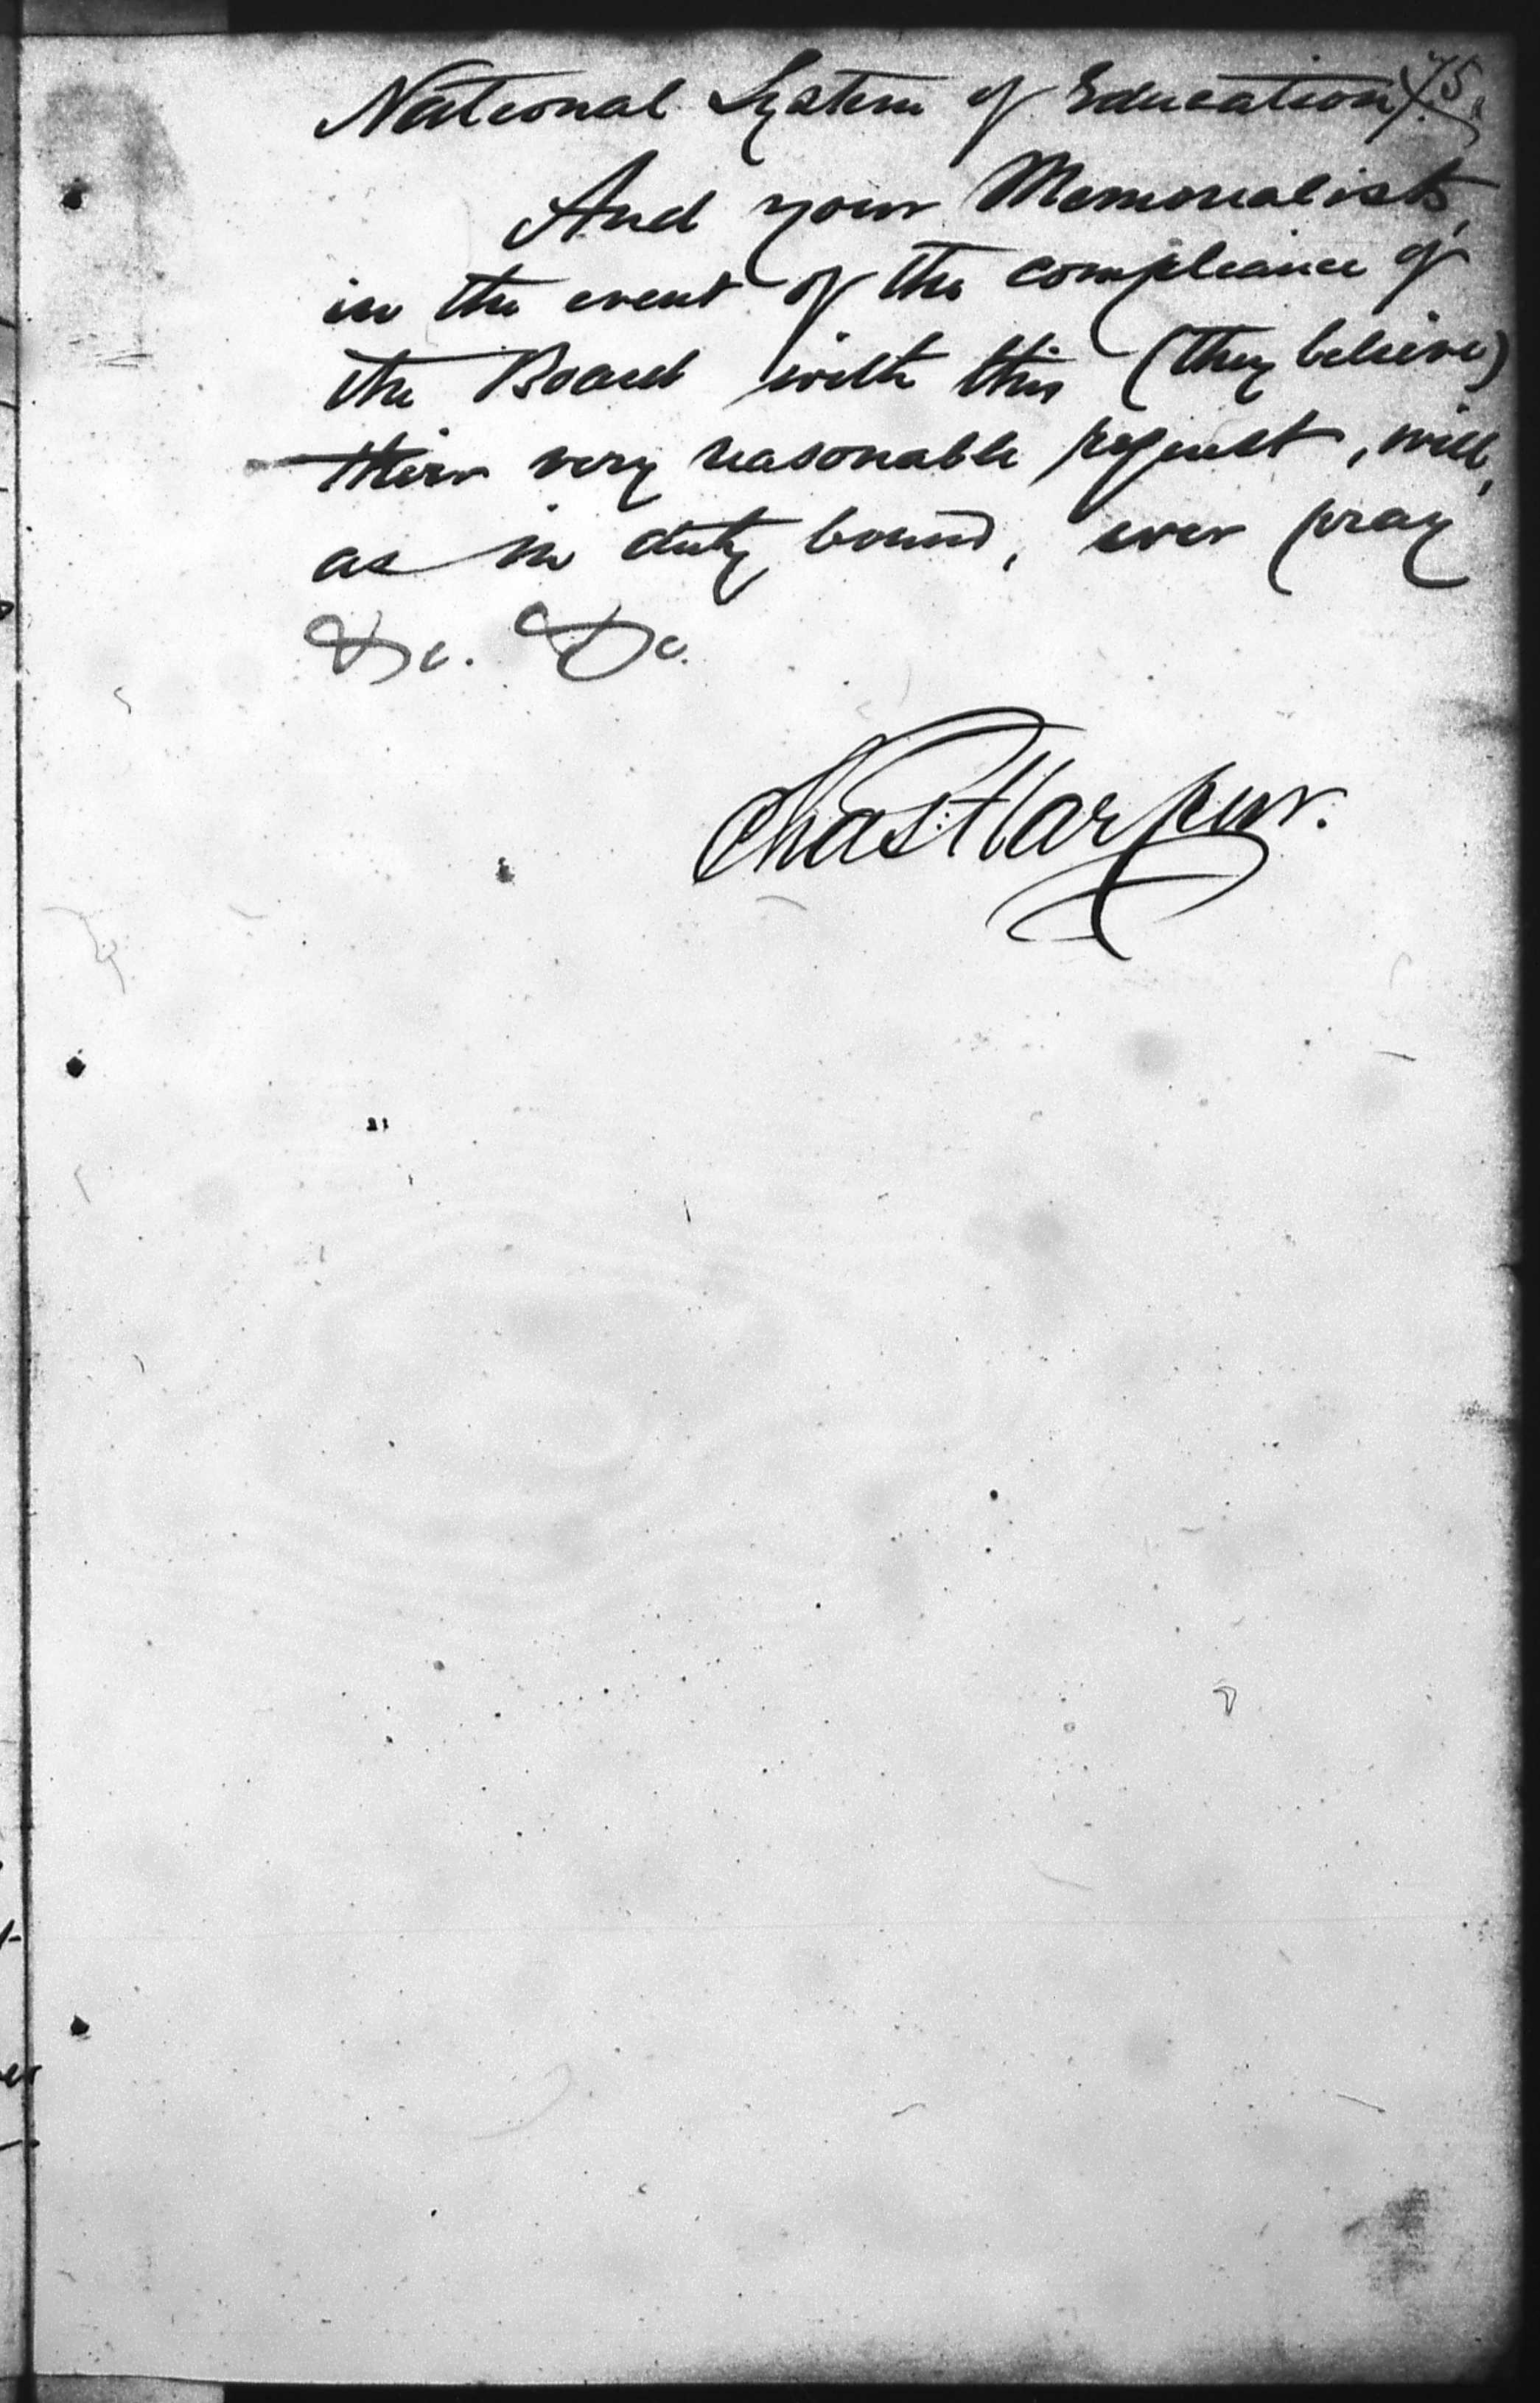 National System of Education. 75
And your Memorialists,
in the event of the compliance of
the Board with this (they believe)
their very reasonable request, will,
as in duty bound, ever pray
&c. &c.
Chas. Harpur.